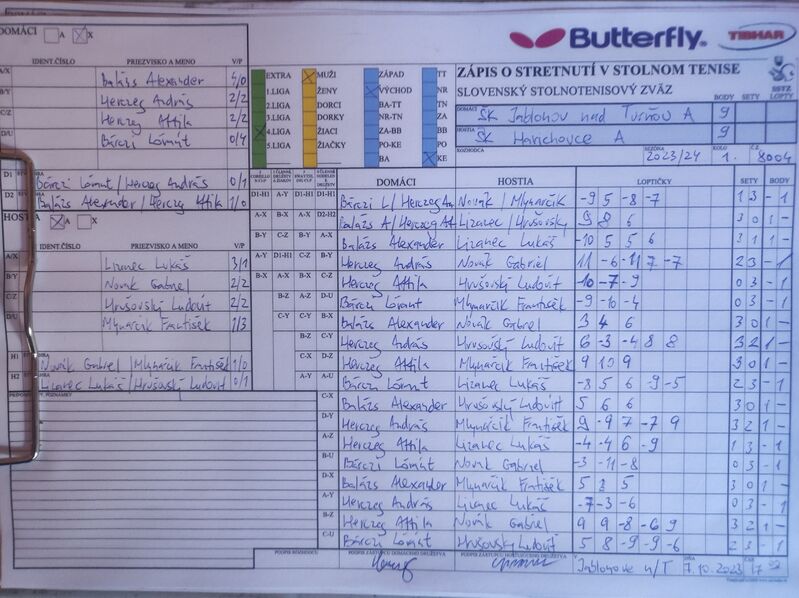 DOMÁCI A X
IDENT.ČÍSLO PRIEZVISKO A MENO V/P
A/X Balázs Alexander 4/0
B/Y Herczeg András 2/2
C/Z Herczeg Attila 2/2
D/U Bárczi Lóránt 0/4
D1 Bárczi Lóránt / Herczeg András 0/1
D2 Balázs Alexander / Herczeg Attila 1/0
HOSTIA A X
IDENT.ČÍSLO PRIEZVISKO A MENO V/P
A/X Lizanec Lukáš 3/1
B/Y Novák Gabriel 2/2
C/Z Hrušovský Ľudovít 2/2
D/U Mlynarčík František 1/3
H1 Novák Gabriel / Mlynarčík František 1/0
H2 Lizanec Lukáš / Hrušovský Ľudovít 0/1
EXTRA
1.LIGA
2.LIGA
3.LIGA
4.LIGA
5.LIGA
MUŽI
ŽENY
DORCI
DORKY
ŽIACI
ŽIAČKY
ZÁPAD
VÝCHOD
BA-TT
NR-TN
ZA-BB
PO-KE
BA
TT
NR
TN
ZA
BB
PO
KE
Butterfly
TIBHAR
ZÁPIS O STRETNUTÍ V STOLNOM TENISE
SLOVENSKÝ STOLNOTENISOVÝ ZVÄZ
BODY SETY LOPTY
SSTZ
DOMÁCI ŠK Jablonov nad Turňou A 9
HOSTIA ŠK Harichovce A 9
ROZHODCA SEZÓNA 2023/24 KOLO 1. Č.Z. 8004
DOMÁCI HOSTIA LOPTIČKY SETY BODY
D1-H1 Bárczi L / Herczeg An Novák / Mlynarčík -9 5 -8 -7 1 3 - 1
D2-H2 Balázs A / Herczeg At Lizanec / Hrušovský 9 8 6 3 0 1 -
A-X Balázs Alexander Lizanec Lukáš -10 5 5 6 3 1 1 -
B-Y Herczeg András Novák Gabriel 11 -6 -11 7 -7 2 3 - 1
C-Z Herczeg Attila Hrušovský Ľudovít -10 -7 -9 0 3 - 1
D-U Bárczi Lóránt Mlynarčík František -9 -10 -4 0 3 - 1
A-Y Balázs Alexander Novák Gabriel 3 4 6 3 0 1 -
B-Z Herczeg András Hrušovský Ľudovít 6 -3 -4 8 8 3 2 1 -
C-U Herczeg Attila Mlynarčík František 9 10 9 3 0 1 -
Bárczi Lóránt Lizanec Lukáš -8 5 6 -9 -5 2 3 - 1
C-X Balázs Alexander Hrušovský Ľudovít 5 6 6 3 0 1 -
D-Y Herczeg András Mlynarčík František 9 -9 7 -7 9 3 2 1 -
A-Z Herczeg Attila Lizanec Lukáš -4 -4 6 -9 1 3 - 1
B-U Bárczi Lóránt Novák Gabriel -3 -11 -8 0 3 - 1
D-X Balázs Alexander Mlynarčík František 5 5 3 0 1 -
A-Y Herczeg András Lizanec Lukáš -7 -3 -6 0 3 - 1
B-Z Herczeg Attila Novák Gabriel 9 9 -8 -6 9 3 2 1 -
C-U Bárczi Lóránt Hrušovský Ľudovít 5 8 -9 -9 -6 2 3 - 1
PODPIS ROZHODCU PODPIS ZÁSTUPCU DOMÁCEHO DRUŽSTVA PODPIS ZÁSTUPCU HOSŤUJÚCEHO DRUŽSTVA
V Jablonove n/T DŇA 7.10.2023 ČAS 17